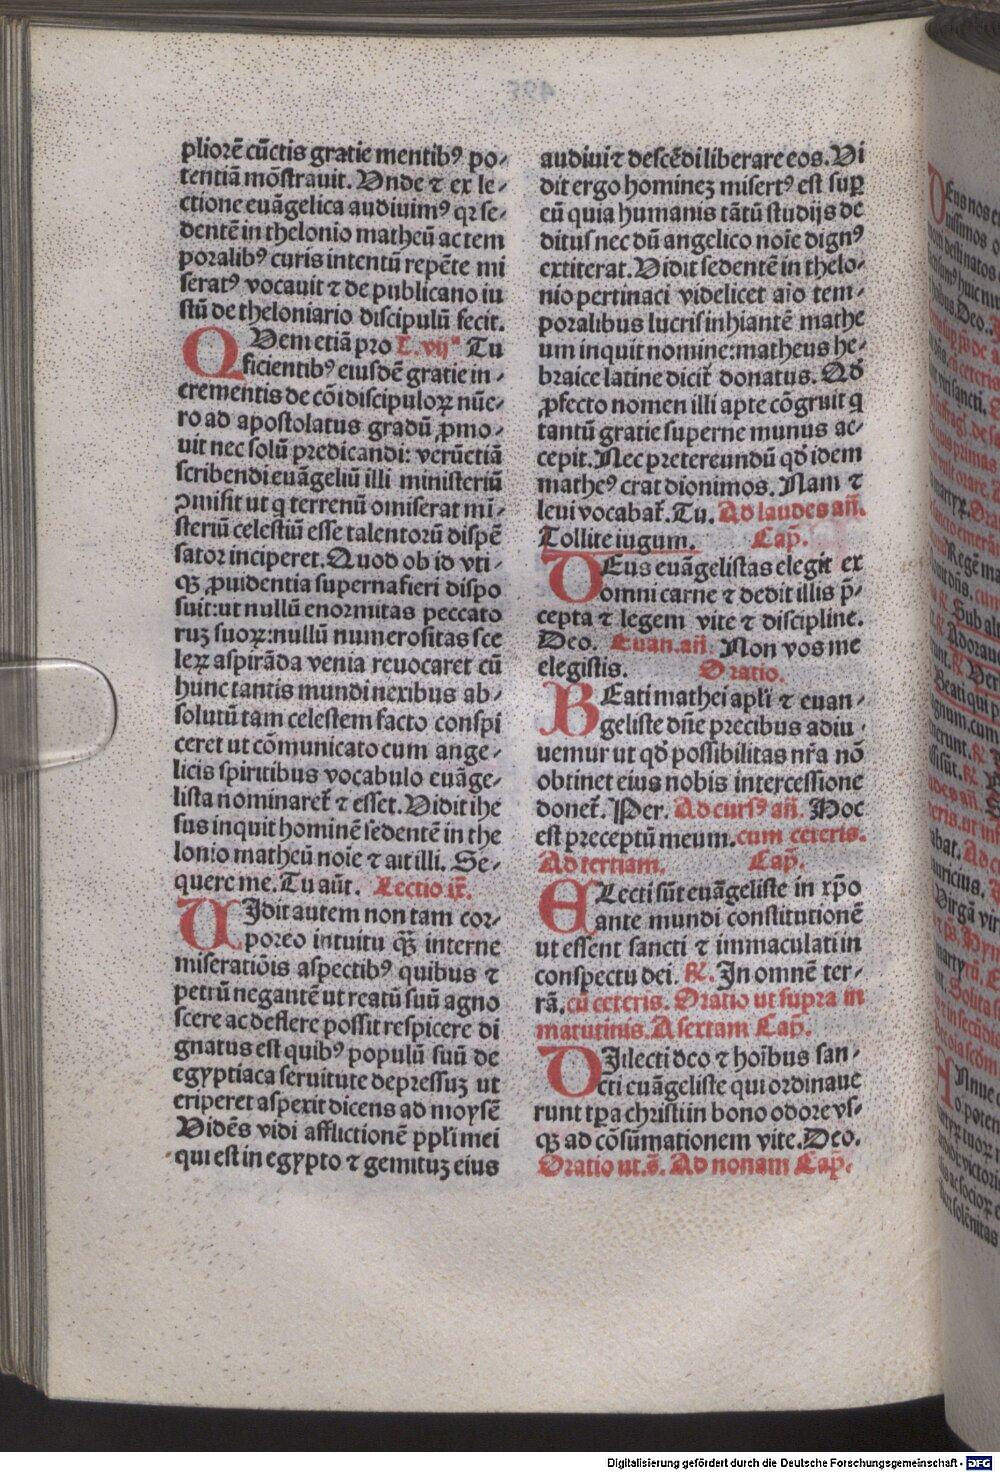 pliorē cūctis gratie mentibꝰ po⸗
tentiā mōstrauit. Unde ⁊ ex le⸗
ctione euāgelica audiuimꝰ qꝛ se⸗
dentē in thelonio matheū ac tem
poralibꝰ curis intentū repēte mi
seratꝰ vocauit ⁊ de publicano iu
stū de theloniario discipulū fecit.
QUem etiā pro L. vijᵃ Tu
ficientibꝰ eiusdē gratie in⸗
crementis de cōi discipuloꝝ nūe⸗
ro ad apostolatus gradū ꝓmo⸗
uit nec solū predicandi: verūetiā
scribendi euāgeliū illi ministeriū
ꝯmisit ut q terrenū omiserat mi⸗
steriū celestiū esse talentorū dispē
sator inciperet. Quod ob id vti⸗
qꝫ ꝓuidentia superna fieri dispo
suit: ut nullū enormitas peccato
ruꝫ suoꝝ: nullū numerositas sce
leꝝ aspirāda venia reuocaret cū
hunc tantis mundi nexibus ab⸗
solutū tam celestem facto conspi
ceret ut cōmunicato cum ange⸗
licis spiritibus vocabulo euāge⸗
lista nominaret̄ ⁊ esset. Vidit ihe
sus inquit hominē sedentē in the
lonio matheū noīe ⁊ ait illi. Se⸗
quere me. Tu aūt. Lectio ix̄.
UIdit autem non tam cor⸗
poreo intuitu qꝫ̄ interne
miseratiōis aspectibꝰ quibus ⁊
petrū negantē ut reatū suū agno
scere ac deflere possit respicere di
gnatus est quibꝰ populū suū de
egyptiaca seruitute depressuꝫ ut
eriperet aspexit dicens ad moysē
Uidēs vidi afflictionē ppl̄i mei
qui est in egypto ⁊ gemituꝫ eius
audiui ⁊ descēdi liberare eos. Vi
dit ergo hominez misertꝰ est suꝑ
eū quia humanis tātū studijs de
ditus nec dū angelico noīe dignꝰ
extiterat. Vidit sedentē in thelo⸗
nio pertinaci videlicet aīo tem⸗
poralibus lucris inhiantē mathe
um inquit nomine: matheus he⸗
braice latine dicit̄ donatus. Qd̄
ꝓfecto nomen illi apte cōgruit q
tantū gratie superne munus ac⸗
cepit. Nec pretereundū qd̄ idem
matheꝰ erat dionimos. Nam ⁊
leui vocabat̄. Tu. Ad laudes an̄.
Tollite iugum. Cap̄.
DEus euāgelistas elegit ex
omni carne ⁊ dedit illis p̄⸗
cepta ⁊ legem vite ⁊ discipline.
Deo. Euan. an̄. Non vos me
elegistis. Oratio.
BEati mathei apl̄i ⁊ euan⸗
geliste dn̄e precibus adiu⸗
uemur ut qd̄ possibilitas nr̄a nō
obtinet eius nobis intercessione
donet̄. Per. Ad cursꝰ an̄. Hoc
est preceptū meum. cum ceteris.
Ad tertiam. Cap̄.
ELecti sūt euāgeliste in xp̄o
ante mundi constitutionē
ut essent sancti ⁊ immaculati in
conspectu dei. ℟. In omnē ter⸗
rā. cū ceteris. Oratio ut supra in
matutinis. A sextam Cap̄.
DIlecti deo ⁊ hoībus san⸗
cti euāgeliste qui ordinaue
runt tꝑa christi in bono odore vs⸗
qꝫ ad cōsūmationem vite. Deo.
Oratio ut. s̄. Ad nonam Cap̄.
Digitalisierung gefördert durch die Deutsche Forschungsgemeinschaft - DFG